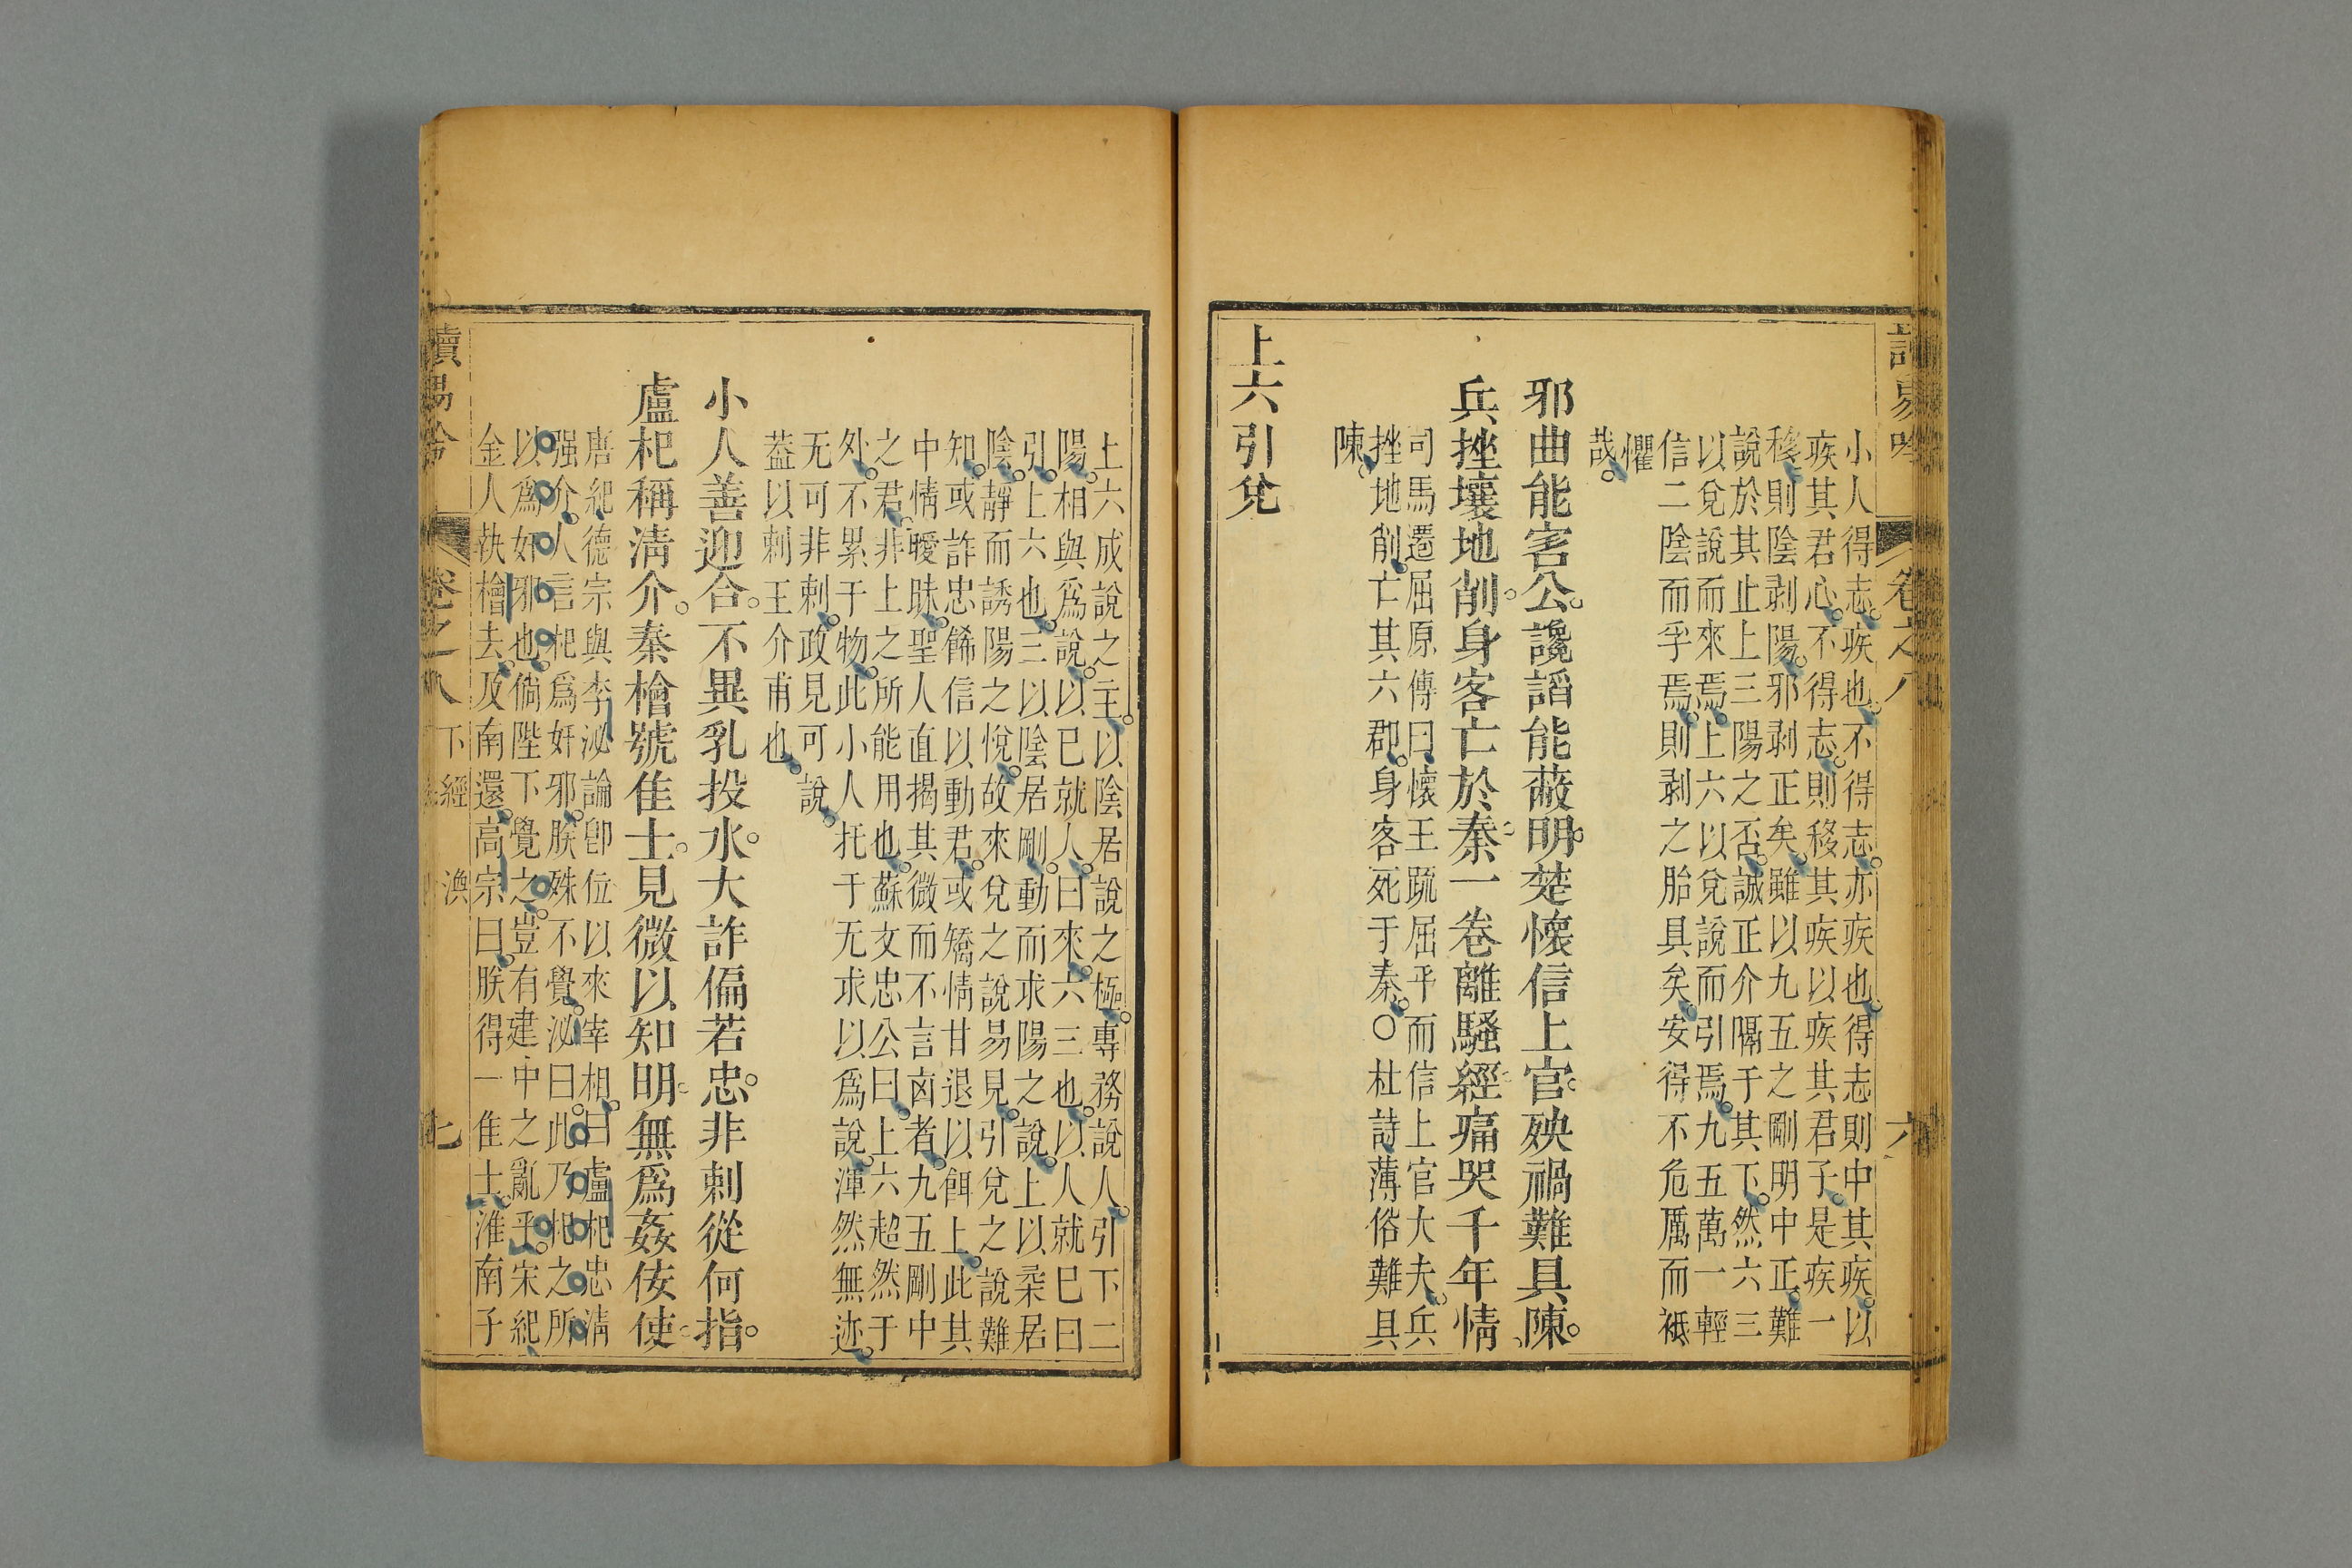 讀易吟
卷之八
六
小人得志。疾也。不得志。亦疾也。得志則中其疾。以
疾其君心。不得志。則移其疾以疾其君子。是疾一
移。則陰剥陽。邪剥正矣。雖以九五之剛明中正。難
說於其止上三陽之否。誠正介隔于其下。然六三
以兌說而來焉。上六以兌說而引焉。九五萬一輕
信二陰而孚焉。則剥之胎具矣。安得不危厲而祗
懼
哉。
邪曲能害公。讒謟能蔽明。楚懷信上官。殃禍難具陳。
兵挫壤地削。身客亡於秦。一卷離騷經。痛哭千年情
司馬遷屈原傳曰。懷王疏屈平而信上官大夫。兵
挫地削。亡其六郡。身客死于秦。○杜詩。薄俗難具
陳。
上六引兌
上六成說之主。以陰居說之極。專務說人。引下二
陽。相與爲說。以已就人。曰來。六三也。以人就巳曰
引。上六也。三以陰居剛。動而求陽之說。上以柔居
陰。靜而誘陽之悅。故來兌之說易見。引兌之說難
知。或詐忠餙信以動君。或矯情甘退以餌上。此其
中情曖昧。聖人直揭其微而不言卤者。九五剛中
之君。非上之所能用也。蘇文忠公曰。上六超然于
外。不累于物。此小人托于无求以爲說。渾然無迹。
无可非刺。政見可說。
葢以刺王介甫也。
小人善迎合。不異乳投水。大詐偏若忠。非刺從何指。
盧杞稱淸介。秦檜號隹士。見微以知明。無爲姦佞使
唐紀。德宗與李泌論卽位以來宰相。曰盧杞忠淸
强介。人言杞爲奸邪。朕殊不覺。泌曰。此乃杞之所
以爲奸邪也。倘陛下覺之。豈有建中之亂乎。宋紀。
金人執檜去。及南還。高宗曰。朕得一隹士。淮南子
讀易吟
卷之八
下經
渙
七